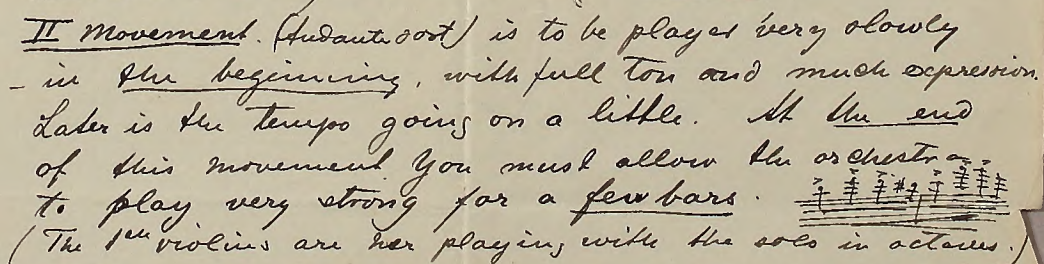 II Movement. (Andante sost) is to be played very slowly
- in the beginning, with full ton and much expression.
Later is the tempo going on a little. At the end
of this movement You must allow the orchestra
to play very strong for a few bars.
(The 1en violins are her playing with the solo in octaves.)